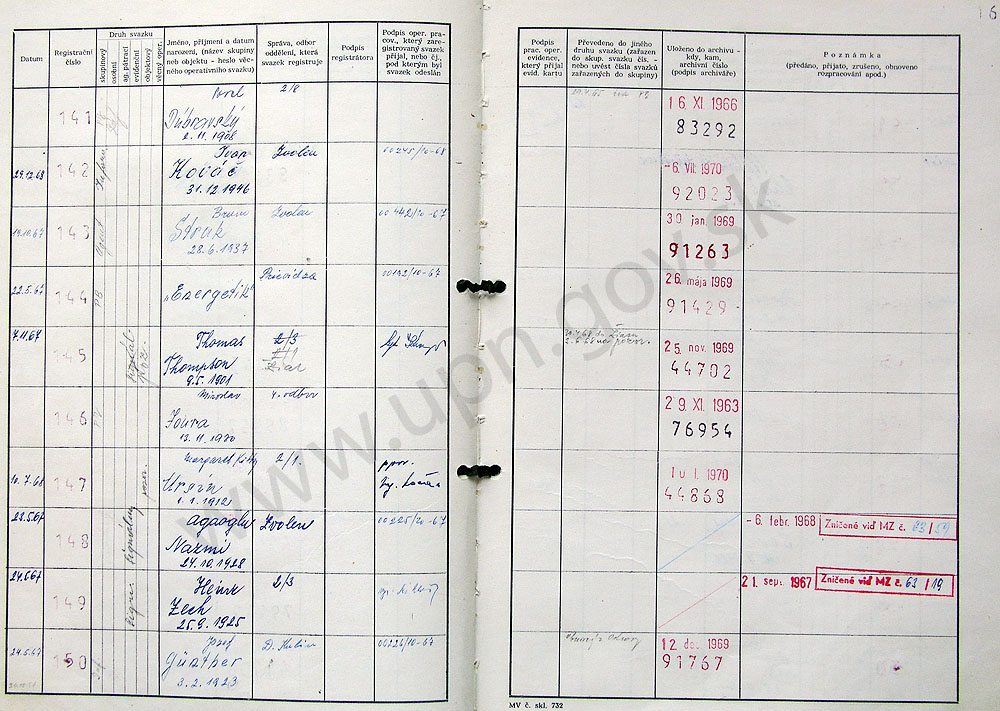 16
Datum
Registrační
číslo
Druh svazku
skupinový
osobní
ag. pátrací
evidenční
objektový
věcný oper.
Jméno, příjmení a datum
narození, (název skupiny
neb objektu - heslo věc-
ného operativního svazku)
Správa, odbor
oddělení, která
svazek registruje
Podpis
registrátora
Podpis oper. pra-
cov., který zare-
gistrovaný svazek
přijal, nebo čj.,
pod kterým byl
svazek odeslán
Podpis
prac. oper.
evidence,
který přijal
evid. kartu
Převedeno do jiného
druhu svazku (zařazen
do skup. svazku čís. -
nebo uvést čísla svazků
zařazených do skupiny)
Uloženo do archivu -
kdy, kam,
archivní číslo
(podpis archiváře)
Poznámka
(předáno, přijato, zrušeno, obnoveno
rozpracování apod.)
141
Dúbravský
2. 11. 1908
16 XI 1966
83292
29.12.68
142
Ivan
Kováč
31. 12 1946
Zvolen
00245/20-68
-6. VII. 1970
92023
19.10.67
143
agent
Strak
28. 6. 1937
Zvolen
00442/20-67
30 jan. 1969
91263
22.5.67
144
PB
"Energetik"
Prievidza
00192/10-67
26. mája 1969
91429
7.11.67
145
Thomas
Thompson
9.5. 1901
2/3
25. nov. 1969
44702
146
Miroslav
Joura
13. 11. 1920
4. odbor
29. XI. 1963
76954
10. 7. 68
147
pozor.
Margaret
1. 1. 1912
2/1.
ppor.
1970
44868
23.5.67
148
Signálny
Agaoglu
Nazmi
24. 10. 1928
Zvolen
00225/20-67
-6. febr. 1968
Zničené viď MZ č. 63/59
24.6.67
149
Signr.
Zech
25. 9. 1925
2/3
21. sep. 1967
Zničené viď MZ č. 63/19
24.5.67
150
Jozef
Günther
3. 2. 1923
D. Kubín
00226/10-67
12 dec 1969
91767
MV č. skl. 732
www.upn.gov.sk